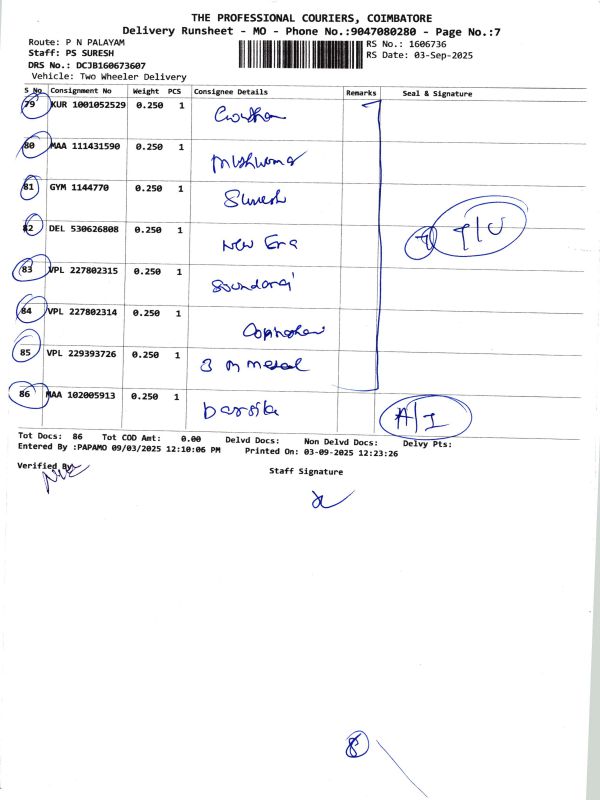 THE PROFESSIONAL COURIERS, COIMBATORE
Delivery Runsheet - MO - Phone No.:9047080280 - Page No.:7
Route: P N PALAYAM
RS No.: 1606736
Staff: PS SURESH
RS Date: 03-Sep-2025
DRS No.: DCJB160673607
Vehicle: Two Wheeler Delivery
S No Consignment No Weight PCS Consignee Details Remarks Seal & Signature
79 KUR 1001052529 0.250 1
80 MAA 111431590 0.250 1
81 GYM 1144770 0.250 1 Suresh
82 DEL 530626808 0.250 1 New Era
83 VPL 227802315 0.250 1 Soundaraj
84 VPL 227802314 0.250 1
85 VPL 229393726 0.250 1 3 M metal
86 MAA 102005913 0.250 1 A/I
Tot Docs: 86 Tot COD Amt: 0.00 Delvd Docs: Non Delvd Docs: Delvy Pts:
Entered By :PAPAMO 09/03/2025 12:10:06 PM Printed On: 03-09-2025 12:23:26
Verified By:
Staff Signature
8